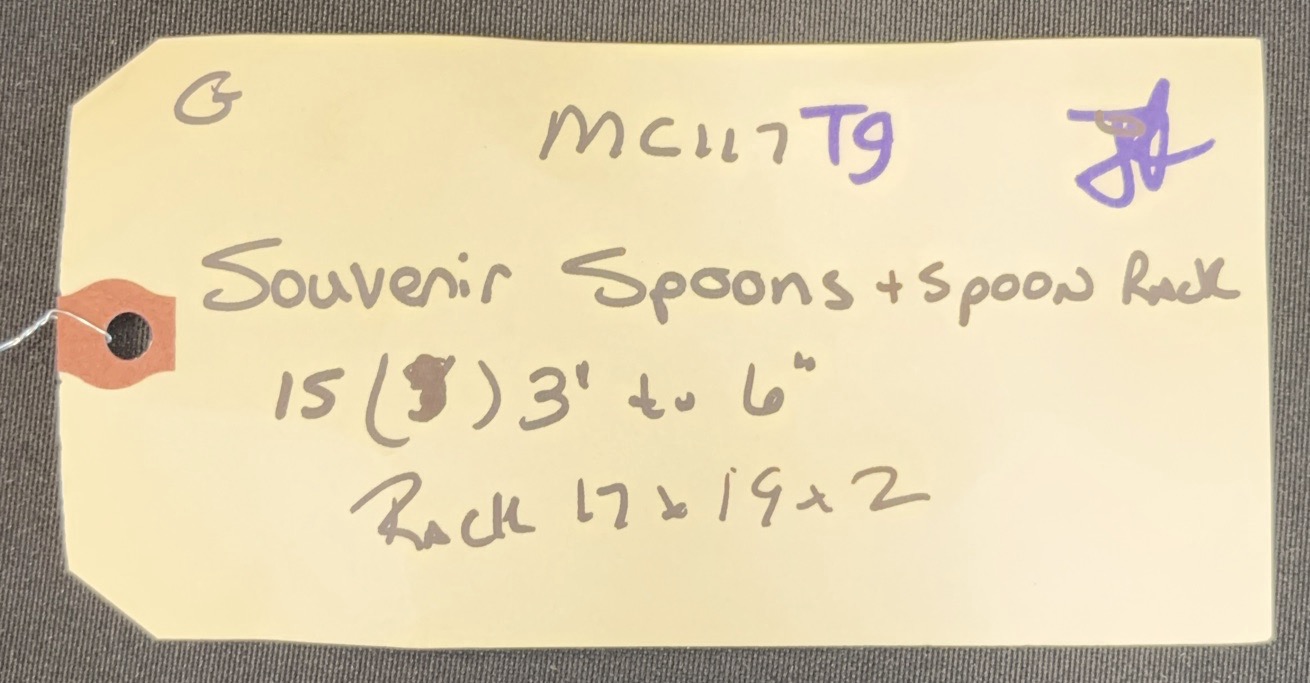 G MC117 Tg
Souvenir Spoons + Spoon Rack
15 ( ) 3" to 6"
Rack 17 x 19 x 2